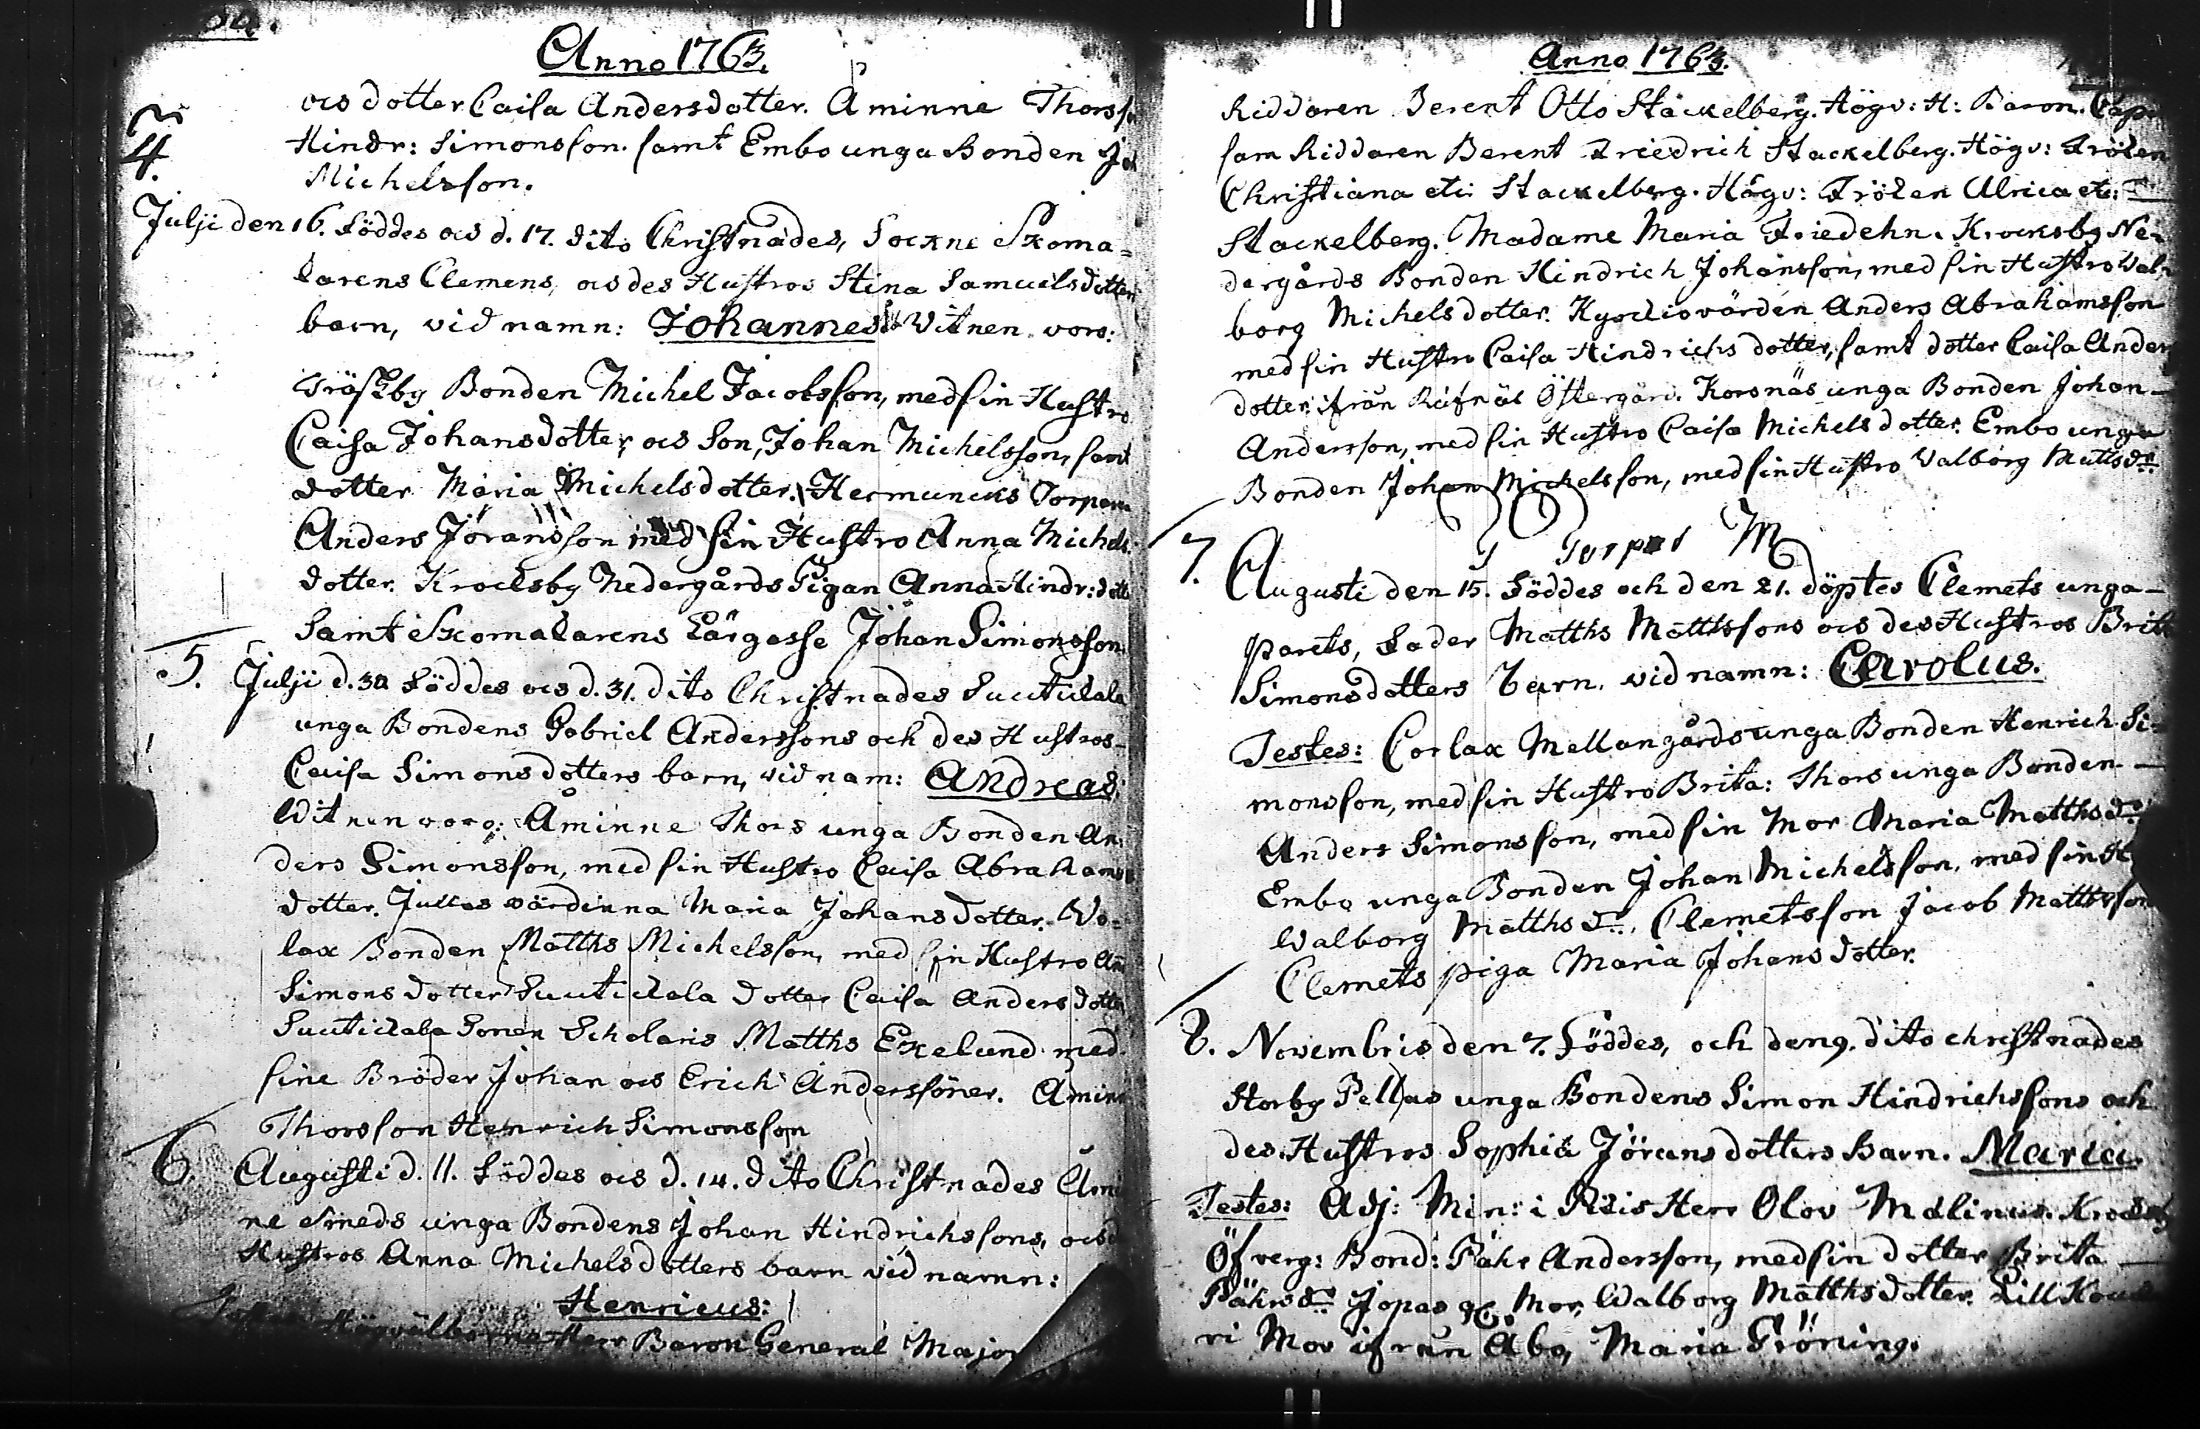 Anno 1763.
ocs dotter Caisa Andersdotter. Åminne Thorss
Hindr: Simonsson. samt Embo unga Bonden Jo
4.
Michelsson.
Julji den 16. föddes ocs d. 17. dito Christnades, Sockne Skoma=
karens Clemens, ocs des Hustros Stina Samuelsdotter
barn, vid namn: Johannes. Witnen voro:
Träskby Bonden Michel Jacobsson, med sin Hustro
Caisa Johansdotter, ocs Son, Johan Michelsson, samt
dotter Maria Michelsdotter. Hermuncks Torpare
Anders Jöransson med sin Hustro Anna Michels
dotter. Krocksby Nedergårds Pigan Anna Hindr: dott
Samt Skomakarens Lärgosse Johan Simonsson.
5. Julji d. 30 föddes ocs d. 31. dito Christnades Suutickala
unga Bondens Gabriel Anderssons och des Hustros-
Caisa Simonsdotters barn, vid nam: Andreas.
Witnen voro: Åminne Thors unga Bonden An:
ders Simonsson, med sin Hustro Caisa Abrahams
dotter. Juttas värdinna Maria Johansdotter. Wo=
lax Bonden Matths Michelsson, med sin Hustro An
Simonsdotter Suutickala dotter Caisa Andersdotter
Suutickala Sonen Scholaris Matths Ekelund med
sine Bröder Johan ocs Erich Anderssöner. Åminn
Thorsson Henrich Simonsson
6. Augusti d. 11. föddes ocs d. 14. dito Christnades Åmi
ne Smeds unga Bondens Johan Hindrichssons, ocs d
Hustros Anna Michelsdotters barn vid namn:
Henricus:
Högvälborne Herr Baron General Major
Anno 1763.
Riddaren Berent Otto Stackelberg. Högv: H: Baron. Cap
sam Riddaren Berent Friedrich Stackelberg. Högv: Fröken
Christiana etc: Stackelberg. Högv: Fröken Ulrica etc:
Stackelberg. Madame Maria Friedehn. Krocksby Ne=
dergårds Bonden Hindrich Johansson, med sin Hustro Wal=
borg Michelsdotter. Kyrckiovärden Anders Abrahamsson
med sin Hustro Caisa Hindrichs dotter, samt dotter Caisa Anders
dotter ifrån Räfnäs Östergård. Korsnäs unga Bonden Johan
Andersson, med sin Hustro Caisa Michelsdotter. Embo unga
Bonden Johan Michelsson, med sin Hustro Walborg Mattsdr
7. Augusti den 15. föddes och den 21. döptes Clemets unga-
parets, fader Matths Matthssons ocs des Hustros Brita
Simonsdotters barn, vid namn: Carolus.
Testes: Corlax Mellangårds unga Bonden Henrich Si=
monsson, med sin Hustro Brita: Thors unga Bonden
Anders Simonsson, med sin Mor Maria Matthsdr
Embo unga Bonden Johan Michelsson, med sin H
Walborg Matthsdr. Clemetsson Jacob Mattsson
Clemets piga Maria Johansdotter.
8. Novembris den 7. föddes, och den 9. dito christnades
Storby Pellas unga Bondens Simon Hindrichssons och
des Hustros Sophia Jöransdotters Barn. Maria.
Testes: Adj: Min: i Kitis Herr Olov Malinus. Krocksby
Öfverg: Bond: Påhr Andersson, med sin dotter Brita
Påhrsdr Jopas gl. Mor, Walborg Matthsdotter. Lill
ri Mor ifrån Åbo, Maria Gröning.